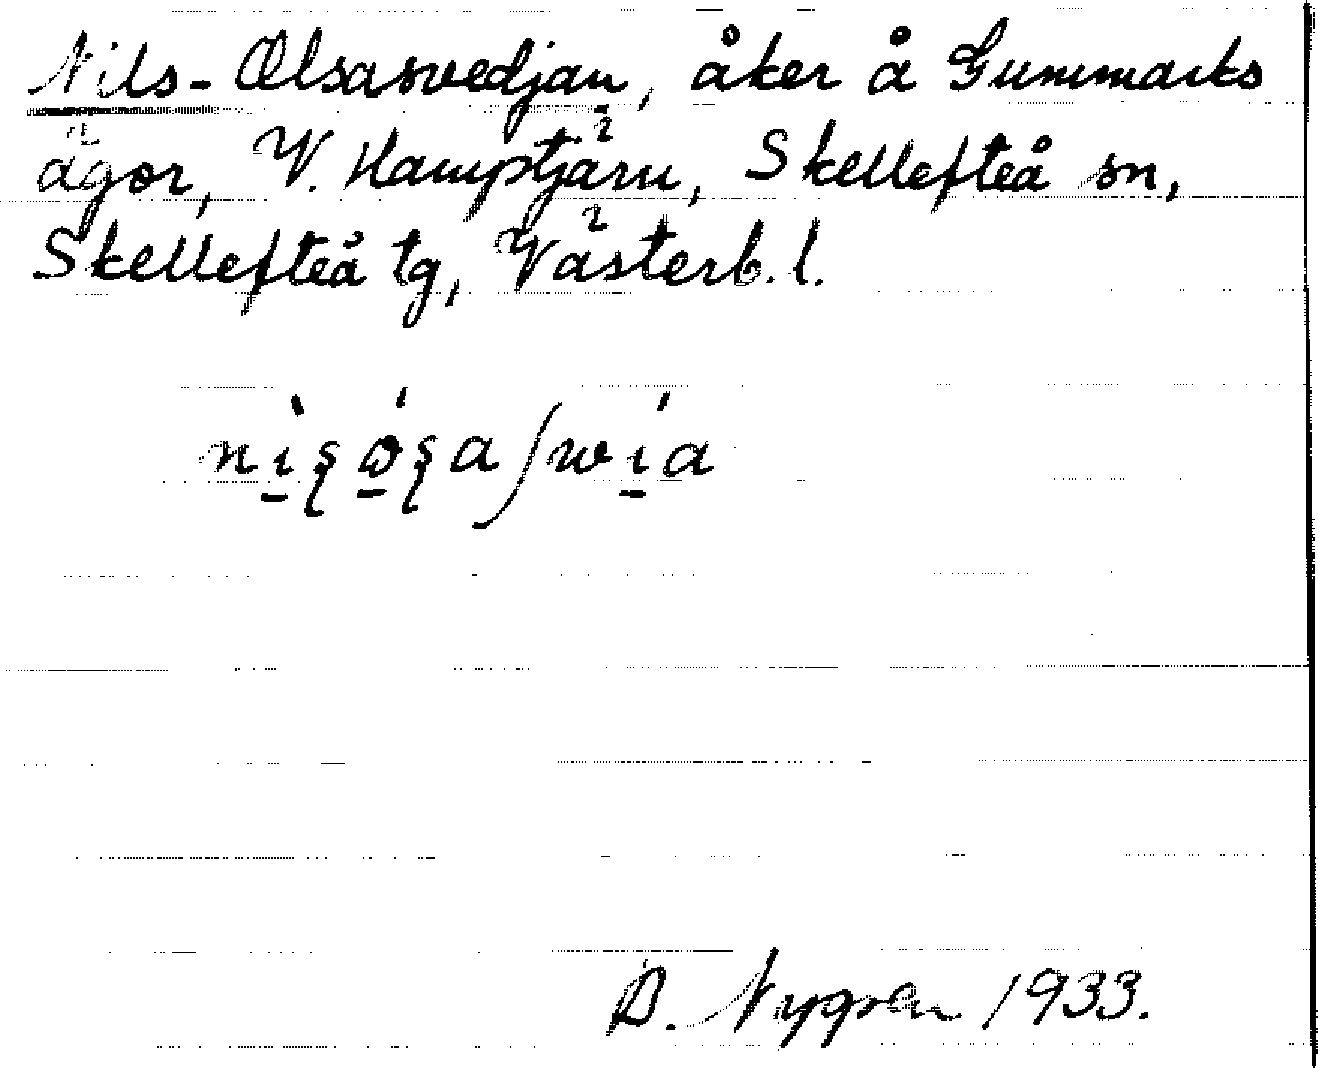 Nils-Olsasvedjan, åker å Gummarks
ägor, V. Hamptjärn, Skellefteå sn,
Skellefteå tg, Västerb. l.
B. Nygren 1933.